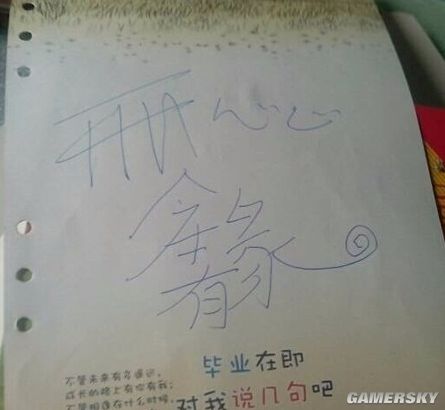 开开心心
毕业在即
对我说几句吧
不管未来有多遥远，
成长的路上有你有我；
不管相逢在什么时候，
GAMERSKY